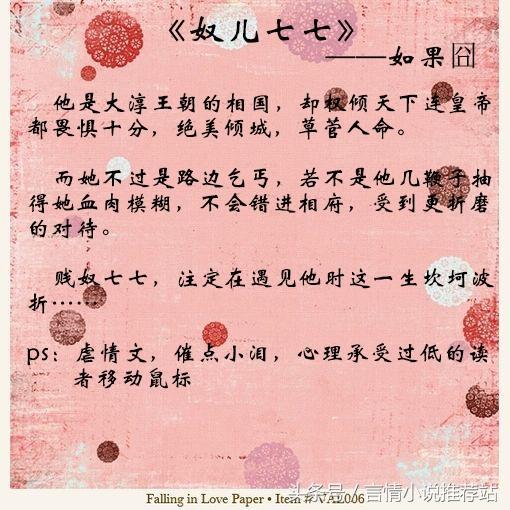 《奴儿七七》
——如果囧
他是大淳王朝的相国，却权倾天下连皇帝
都畏惧十分，绝美倾城，草菅人命。
而她不过是路边乞丐，若不是他几鞭子抽
得她血肉模糊，不会错进相府，受到更折磨
的对待。
贱奴七七，注定在遇见他时这一生坎坷波
折……
ps：虐情文，催点小泪，心理承受过低的读
者移动鼠标
Falling in Love Paper • Item # VAL006
头条号／言情小说推荐站